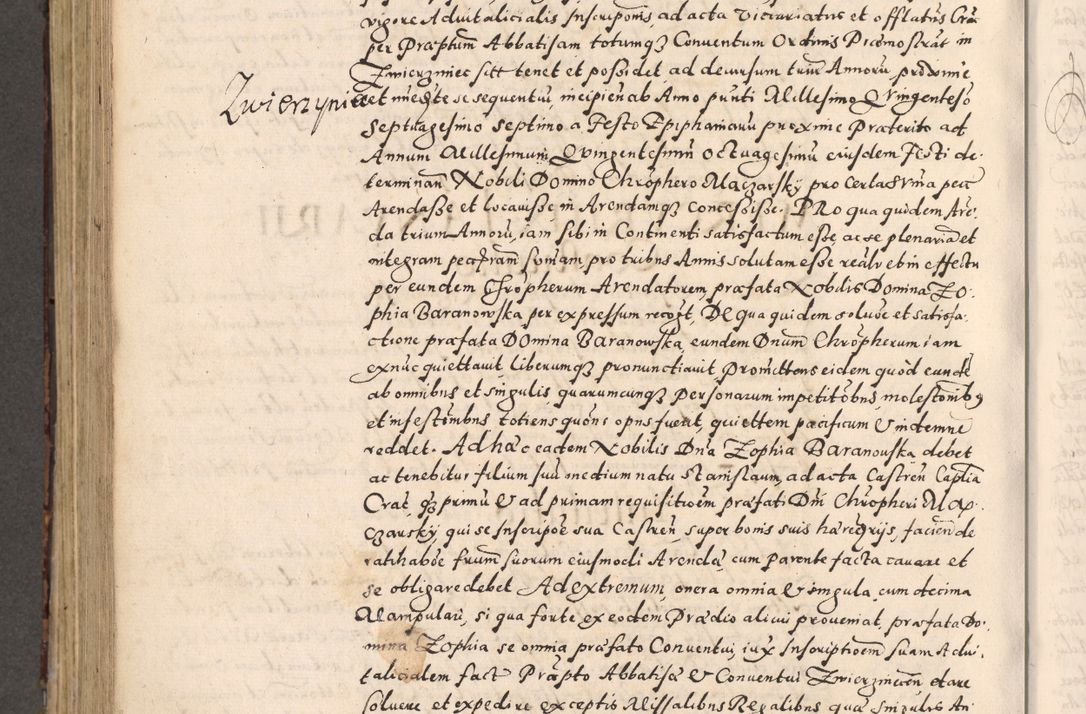 vigore Advitalicialis Inscriptionis, ad acta Vicariatus et offlatus Crac
per Præptum Abbatisam totumqȝ Conventum Ordinis Præmostrat in
Zwierziniec sitt tenet et possidet ad decursum triũ Annorũ, proxime
Zwierzyniec
et imẽdte se sequentiũ, incipien ab Anno pũnti Millesimo Quingenteso
Septuagesimo septimo a Festo Epiphaniarũ proxime Præterito ad
Annum Millesimum Quingentesimũ octuagesimũ eiusdem Festi de-
terminañ Nobili Domino Chrophero Maczarsky pro certa summa pecc
Arendasse et locavisse in Arendamqȝ concessisse. PRo qua quidem Are-
da trium Annorũ, iam sibi in Continenti satisfactum esse, ac se plenariã et
integram peccratam sum̃am, pro tribus Annis solutam esse realr et in effectu
per eundem Chropherum Arendatorem, præfata Nobilis Domina Zo-
phia Baranowska per expressum recogt, DE qua quidem soluõe et satisfa-
ctione præfata Domina Baranowska, eundem Dnum Chropherum iam
exnũc quiettavit liberumqȝ pronunctiavit Promittens eidem quod eundẽ
ab omnibus et singulis quarumcunqȝ Personarum impetitõbus, molestonibꝯ
et infestõnibus totiens quõns opus fuerit, quiettem pacificum & indemnẽ
reddet. Ad hæc eadem Nobilis Dna Zophia Baranowska debet
ac tenebitur filium suũ medium natu Stanislaum, ad acta Castreñ Captlia
Crac̃ qȝ primũ & ad primam requisitioẽm præfati Dni Chropheri Mac-
czarsky, qui se Inscripõe sua Castreñ, super bonis suis hæregrijs, faciende
ratihabõe fratrum suorum eiusmodi Arendæ, cum parente facta cavare et
se obligare debet Ad extremum, onera omnia & singula, cum decima
Manipulari, si qua forte, ex eodem Prædio alicui proveniat, præfata Do-
mina Zophia se omnia præfato Conventui, iux Inscriptioẽm suam Advi-
talicialem fact Præpto Abbatisæ & Conventui Zwierzinceñ et are
solvere et expedire exceptis Missalibus Regalibus qua singulis An